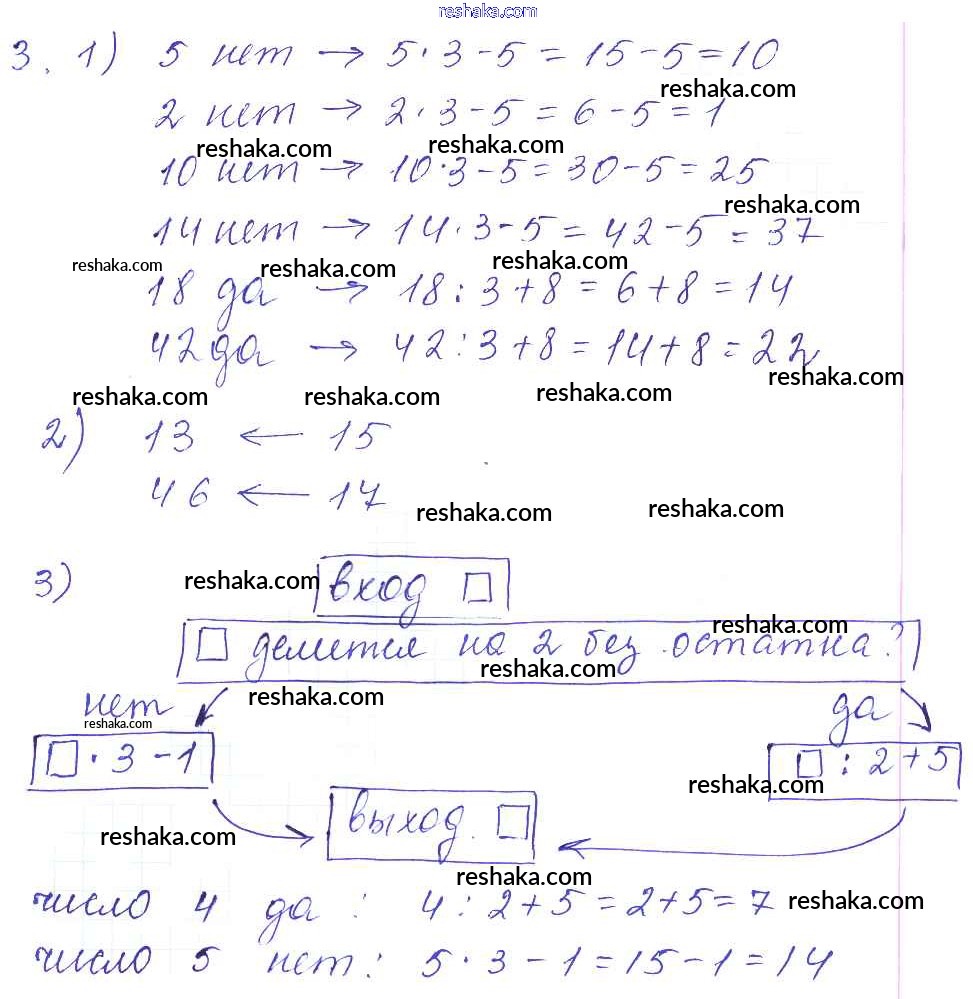 reshaka.com
3. 1) 5 нет → 5 · 3 - 5 = 15 - 5 = 10
reshaka.com
2 нет → 2 · 3 - 5 = 6 - 5 = 1
reshaka.com reshaka.com
10 нет → 10 · 3 - 5 = 30 - 5 = 25
reshaka.com
14 нет → 14 · 3 - 5 = 42 - 5 = 37
reshaka.com reshaka.com reshaka.com
18 да → 18 : 3 + 8 = 6 + 8 = 14
42 да → 42 : 3 + 8 = 14 + 8 = 22
reshaka.com reshaka.com reshaka.com reshaka.com
2) 13 ← 15
46 ← 17
reshaka.com reshaka.com
3) reshaka.com вход □
reshaka.com
□ делится на 2 без остатка?
reshaka.com
reshaka.com
нет да
reshaka.com
□ · 3 - 1 □ : 2 + 5
reshaka.com
выход □
reshaka.com
reshaka.com
число 4 да : 4 : 2 + 5 = 2 + 5 = 7
reshaka.com
число 5 нет : 5 · 3 - 1 = 15 - 1 = 14